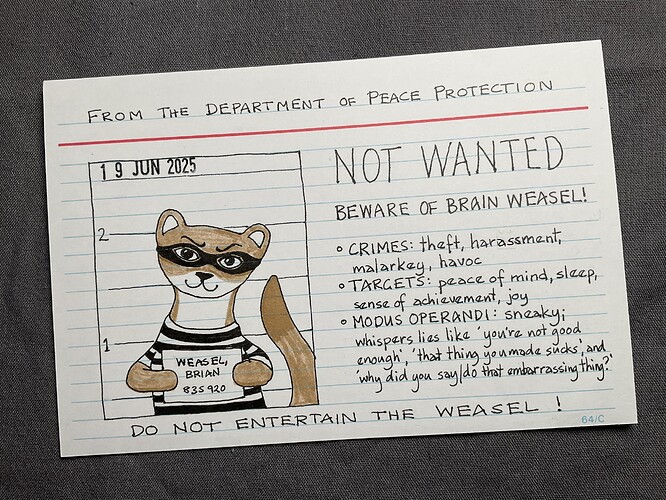 FROM THE DEPARTMENT OF PEACE PROTECTION
19 JUN 2025
2
1
WEASEL,
BRIAN
835920
NOT WANTED
BEWARE OF BRAIN WEASEL!
° CRIMES: theft, harassment,
malarkey, havoc
° TARGETS: peace of mind, sleep,
sense of achievement, joy
° MODUS OPERANDI: sneaky;
whispers lies like 'you're not good
enough', 'that thing you made sucks', and
'why did you say/do that embarrassing thing?'
DO NOT ENTERTAIN THE WEASEL!
64/C